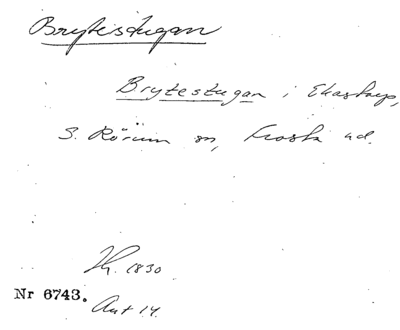 Brytestugan
Brytestugan i Ekastorp,
S. Rörum sn, Frosta hd.
Th. 1830
Nr 6743.
Ant 14.